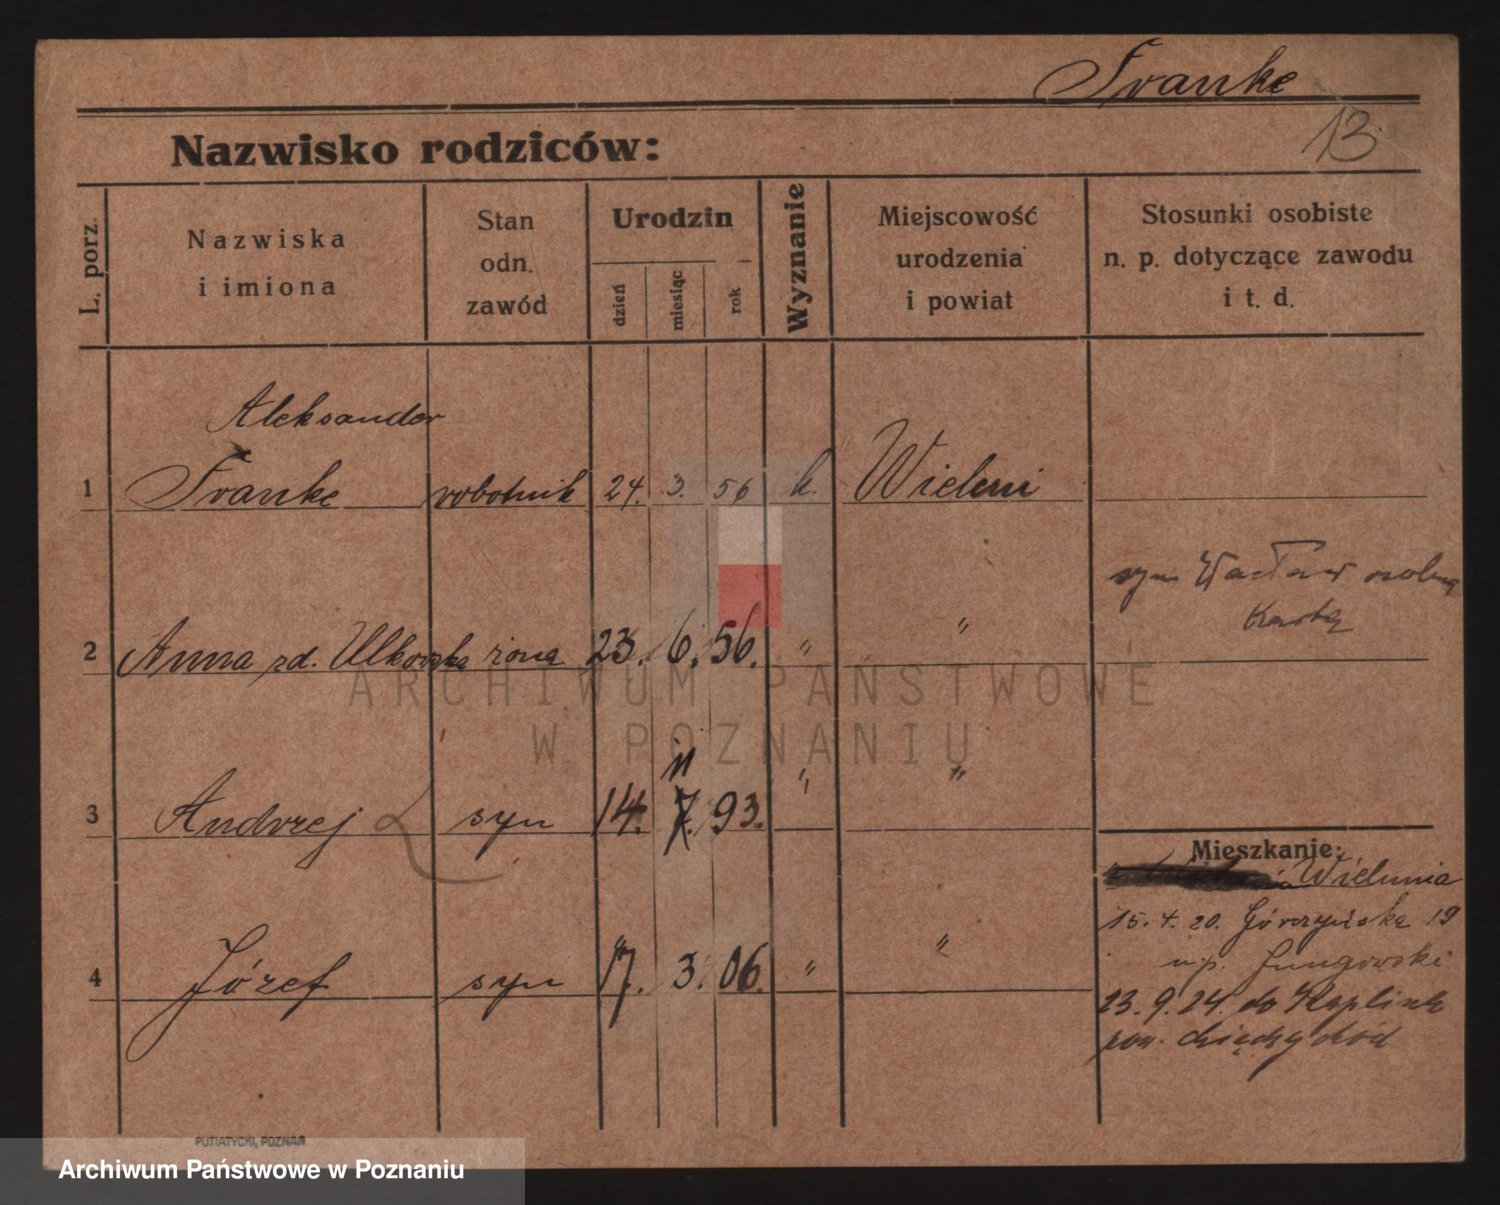 Franke
13
Nazwisko rodziców:
L. porz.
Nazwiska
i imiona
Stan
odn.
zawód
Urodzin
dzień
miesiąc
rok
Wyznanie
Miejscowość
urodzenia
i powiat
Stosunki osobiste
n. p. dotyczące zawodu
i t. d.
Aleksander
1 Franke robotnik 24. 3. 56 k. Wieleni
syn Wacław osobną
kartę
2 Anna zd. Ulkowska żona 23. 6. 56. " "
11
3 Andrzej syn 14. 7. 93. " "
4 Józef syn 17. 3. 06. " "
Mieszkanie:
Wielunia
15. 4. 20. Górczyńska 19
u p. Jungowski
23. 9. 24. do Kaplink
pow. Międzychód
ARCHIWUM PAŃSTWOWE
W POZNANIU
PUTIATYCKI, POZNAŃ
Archiwum Państwowe w Poznaniu